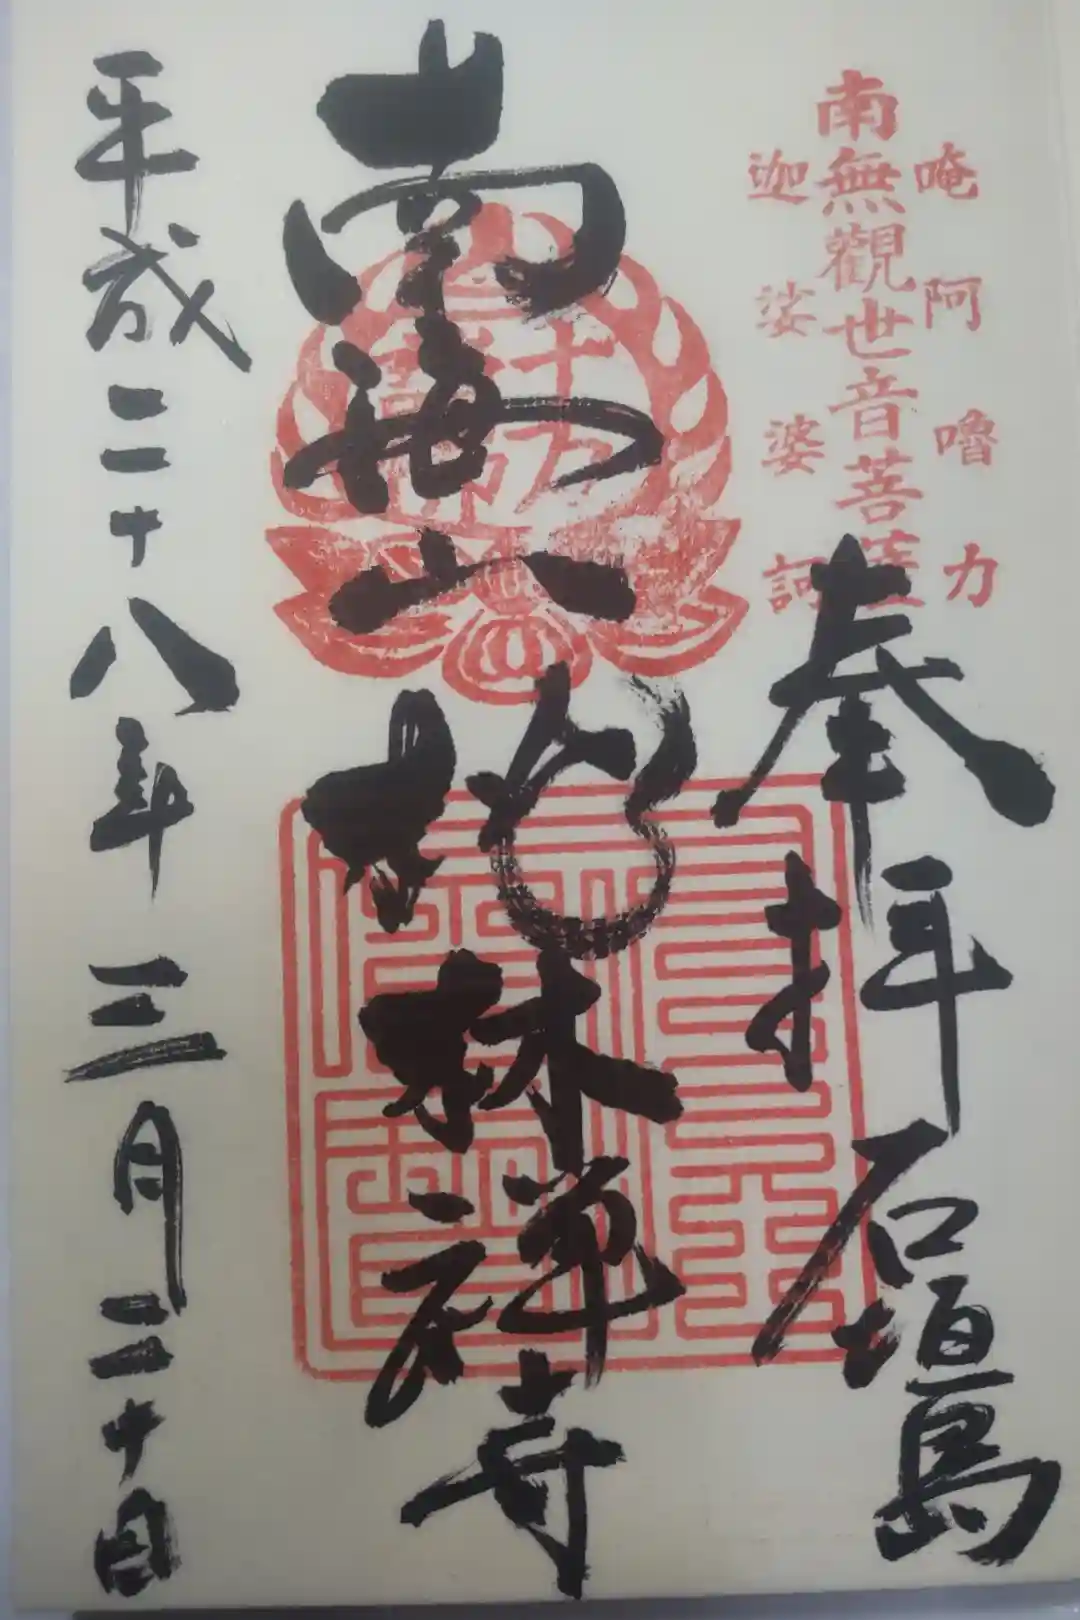 唵阿嚕力
南無觀世音菩薩
迦娑婆訶
奉拝石垣島
南海山桃林禅寺
平成二十八年三月二十日